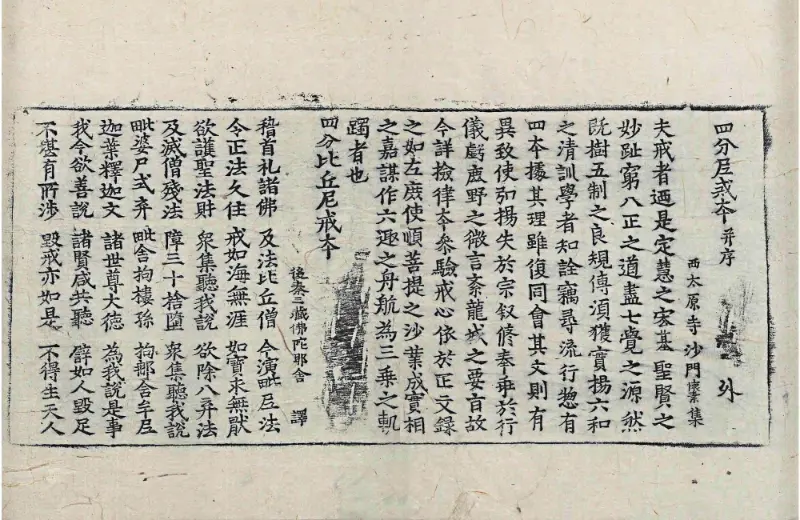 四分尼戒本并序
外
西太原寺沙門懷素集
夫戒者迺是定慧之宏基聖賢之
妙趾窮八正之道盡七覺之源然
既樹五制之良規傳須獲實揚六和
之清訓學者知詮竊尋流行惣有
四本據其理雖復同會其文則有
異致使弘揚失於宗叙修奉乖於行
儀虧鹿野之微言紊龍城之要旨故
今詳撿律本參驗戒心依於正文錄
之如左庶使順菩提之沙葉成實相
之嘉謀作六趣之舟航為三乘之軌
躅者也
四分比丘尼戒本
後秦三藏佛陀耶舍 譯
稽首礼諸佛 及法比丘僧 今演毗尼法
令正法久住 戒如海無涯 如寶求無猒
欲護聖法財 衆集聽我說 欲除八弃法
及滅僧殘法 障三十捨墮 衆集聽我說
毗婆尸式弃 毗舍拘樓孫 拘那含牟尼
迦葉釋迦文 諸世尊大德 為我說是事
我今欲善說 諸賢咸共聽 譬如人毀足
不堪有所涉 毀戒亦如是 不得生天人